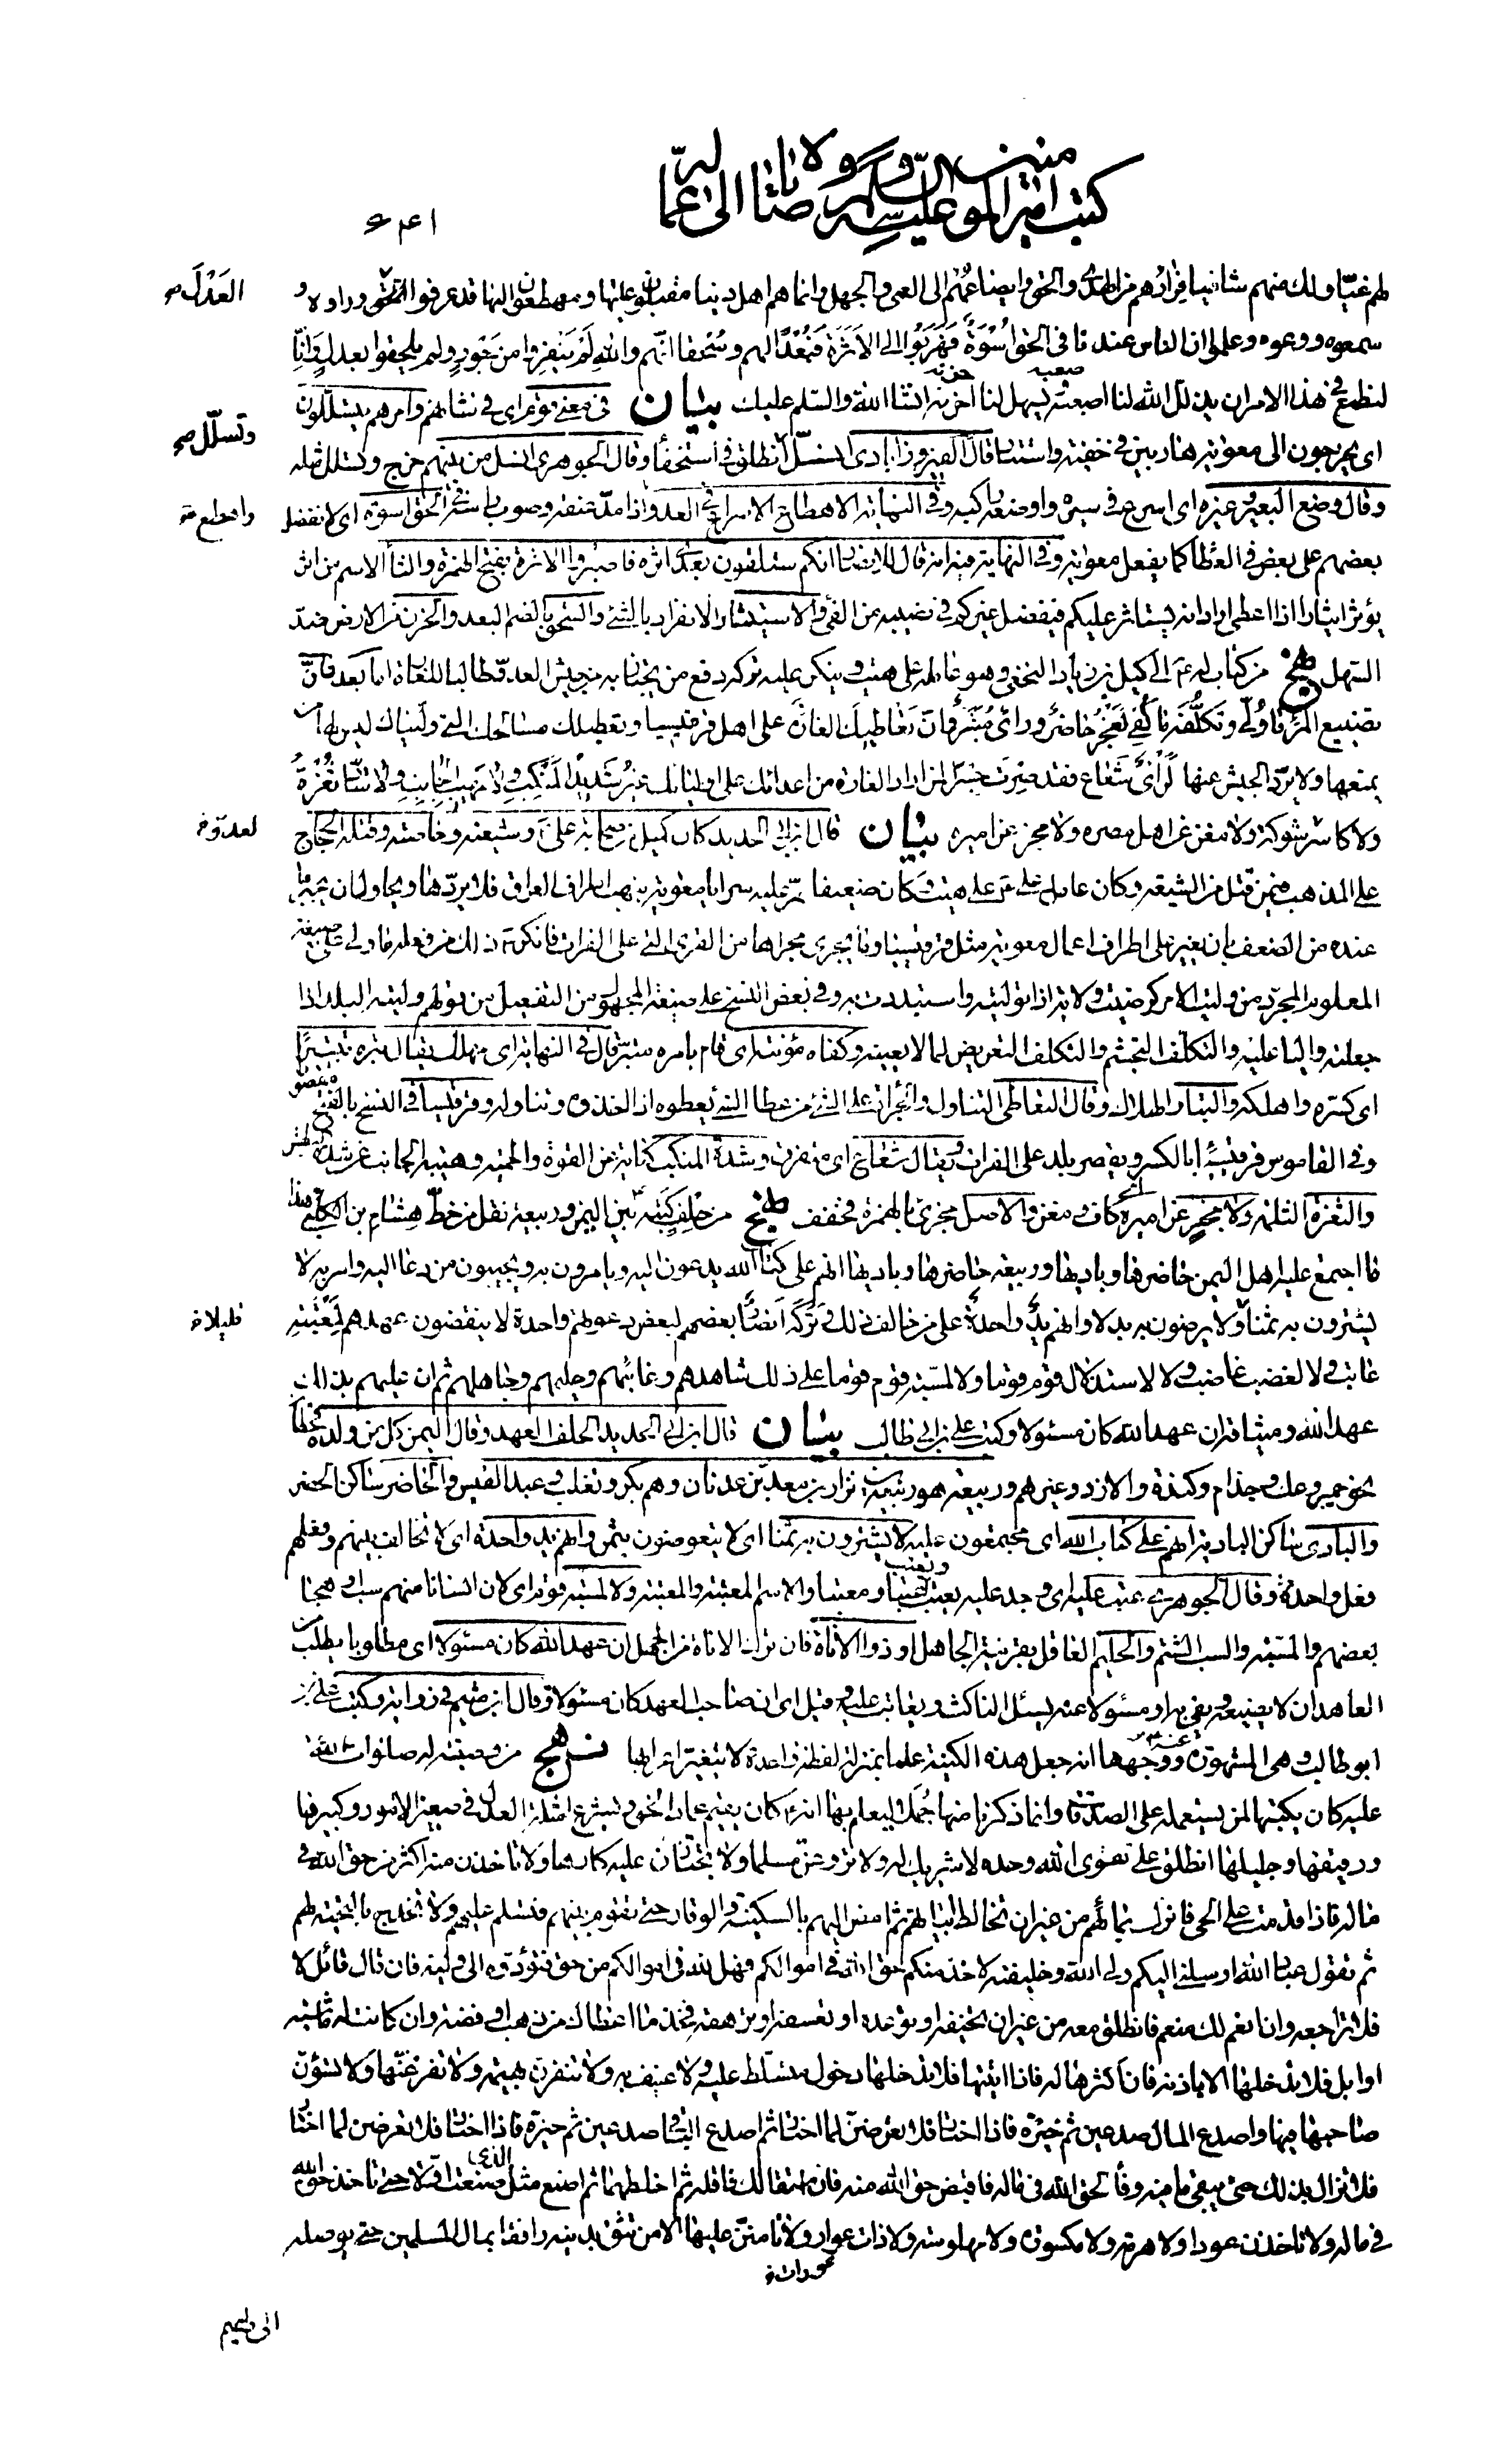 كتب امير المؤمنين عليه السلم ووصاياه الى عماله
٦٤١
لهم غيّا ولك منهم شافيا فرارهم من الهدى والحق وايضاعهم الى العمى والجهل وانما هم اهل دنيا مقبلون عليها ومهطعون اليها قد عرفوا العدل وراوه و
العَدْلَ صح
سمعوه ووعوه وعلموا ان الناس عندنا فى الحق اُسْوَةٌ فَهَرَبُوا الى الاَثَرَة فَبُعْدًا لهم وسُحقا انّهم والله لَمْ يَنفِروا من جَورٍ ولم يلحقوا بعدل وَانّا
لنطمع فى هذا الامر ان يذلل الله لنا صعبه ويسهل لنا حزنه انشاء الله والسّلم عليك بيان فى معنى قوم اى فى شانهم وامرهم يتسلّلون
وتسلّل صح
اى يخرجون الى معوية هاربين فى خفية واستتار قال الفيروزآبادى انسلّ انطلق فى استخفاء وقال الجوهرى انسل من بينهم خرج وتسلل مثله
وقال وضع البعير وغيره اى اسرع فى سيره واوضعه راكبه وفى النهاية الاهطاع الاسراع فى العدو واذا مدّ عنقه وصوب راسه فى الحق اسوة اى لا نفضل
واهطع صح
بعضهم على بعض فى العطاء كما يفعل معوية وفى النهاية فيه انه قال للانصار انكم ستلقون بعدى اثرة فاصبروا الاثرة بفتح الهمزة والثاء الاسم من اثر
يؤثر ايثارا اذا اعطى اراد انه يستاثر عليكم فيفضل غيركم فى نصيبه من الفىء والاستيثار الانفراد بالشىء والسحق بالضم البعد والحزن من الارض ضدّ
السّهل نهج من كتاب له ع الى كميل بن زياد النخعى وهو عامله على هيت ينكر عليه تركه دفع من يجتاز به من جيش العدو طالبا للغارة اما بعد فانّ
تضييع المرء ما وُلّى وتكلُّفه ما كُفى لَعَجْزٌ حاضر وراى مُتَبَّر وانّ تَعَاطيك الغارَة على اهل قرقيسيا وتعطيلك مسالحك التى ولّيناك ليس لها من
يمنعها ولا يردّ الجيش عنها لَرَأىٌ شَعَاع فقد صرت جسرًا لمن اراد الغارة من اعدائك على اوليائك غير شديد المَنْكِب ولا مَهيب الجانِبِ ولا سَادّ ثُغْرَةً
ولا كاسر شوكة ولا مغن عن اهل مصره ولا مجز عن اميره بيان قال ابن ابى الحديد كان كميل من صحابة على ع وشيعته وخاصته وقتله الحجاج
لعدوّ خ
على المذهب فيمن قتل من الشيعة وكان عامل على ع على هيت وكان ضعيفا تمرّ عليه سرايا معوية ينهب اطراف العراق فلا يردّها ويحاول ان يجبر ما
عنده من الضعف بان يغير على اطراف اعمال معوية مثل قرقيسيا وما يجرى مجراها من القرى التى على الفرات فانكر ع ذلك من فعله ما ولى على صيغة
المعلوم المجرّد من وليت الامر كرضيت ولاية اذا توليته واستبددت به وفى بعض النسخ على صيغة المجهول من التفعيل من قولهم وليته البلد اذا
جعلته واليا عليه والتكلّف التجشم والتكلف التعريض لما لا يعينه وكفاه مؤنته اى قام بامره متبر قال فى النهاية اى مهلك يقال تبره تتبيرًا
اى كسّره واهلكه والتبار الهلاك وقال التعاطى التناول والجراة على الشئ من عطا الشئ يعطوه اذا اخذه وتناوله وقرقيسيا فى النسخ بالفتح مقصورا
وفى القاموس قرقيسياء بالكسر ويقصر بلد على الفرات ويقال شعاع اى متفرق وشدة المنكب كناية عن القوة والحمية وهيبة الجانب عن شدة البطش
والثغرة الثلمة ولا مجز عن اميره اى كاف ومغن والاصل مجزئ بالهمزة فخفف نهج من حلف كتبه ع بين اليمن وربيعة نقل من خطّ هشام بن الكلبى هذا
ما اجتمع عليه اهل اليمن حاضرها وباديها وربيعة حاضرها وباديها انهم على كتاب الله يدعون اليه ويامرون به ويجيبون من دعا اليه وامر به لا
يشترون به ثمنا ولا يرضون به بدلا وانهم يدٌ واحدةٌ على من خالف ذلك وتركه انصار بعضهم لبعض دعوتهم واحدة لا ينقضون عهدهم لمَعْتَبَةِ
قليلا خ
عاتب ولا لغضب غاضب ولا لاستذلال قوم قوما ولا لمسبّة قوم قوما على ذلك شاهدهم وغائبهم وحليمهم وجاهلهم ثم ان عليهم بذلك
عهد الله وميثاقه ان عهد الله كان مسئولا وكتب على بن ابى طالب بيان قال ابن ابى الحديد الحلف العهد وقال اليمن كل من ولده قحطان
نحو حمير وعك وجذام وكندة والازد وغيرهم وربيعة هو ربيعة بن نزار بن معد بن عدنان وهم بكر وتغلب وعبد القيس والحاضر ساكن الحضر
والبادى ساكن البادية انهم على كتاب الله اى مجتمعون عليه لا يشترون به ثمنا اى لا يتعوضون بثمن وانهم يد واحدة اى لا تخالف بينهم وفعلهم
فعل واحد وقال الجوهرى عتب عليه اى وجد عليه يعتب ويعتب عتبا ومعتبا والاسم المعتبة والمعتبة ولا لمسبة قوم اى لان انسانا منهم سب وهجا
بعضهم والمسبّة والسب الشتم والحليم العاقل بقرينة الجاهل او ذو الاناة فان ترك الاناة من الجهل ان عهد الله كان مسئولا اى مطلوبا يطلب من
العاهد ان لا يضيعه ويفى به او مسئولا عنه يسئل الناكث ويعاتب عليه وقيل اى ان صاحب العهد كان مسئولا وقال ابن ميثم فى رواية وكتب على بن
ابو طالب وهى المشهورة عنه ع ووجهها انه جعل هذه الكنية علما بمنزلة لفظة واحدة لا يتغير اعرابها نهج من وصيته له صلوات الله
عليه كان يكتبها لمن يستعمله على الصدقات وانما ذكرنا منها جُمَلًا ليعلم بها انه ع كان يقيم عماد الحق ويشرع امثلة العدل فى صغير الامور وكبيرها
ودقيقها وجليلها انطلق على تقوى الله وحده لا شريك له ولا تروعنّ مسلما ولا تجتازن عليه كارها ولا تاخذن منه اكثر من حق الله فى
ماله فاذا قدمت على الحى فانزل بمائهم من غير ان تخالط ابياتهم ثم امض اليهم بالسكينة والوقار حتى تقوم بينهم فتسلم عليهم ولا تخدج بالتحية لهم
ثم تقول عباد الله ارسلنى اليكم ولى الله وخليفته لاخذ منكم حق الله فى اموالكم فهل لله فى اموالكم من حق فتؤدوه الى وليه فان قال قائل لا
فلا تراجعه وان انعم لك منعم فانطلق معه من غير ان تخيفه او توعده او تعسفه او ترهقه فخذ ما اعطاك من ذهب او فضة وان كانت له ماشية
او ابل فلا تدخلها الا باذنه فان اكثرها له فاذا اتيتها فلا تدخلها دخول متسلّط عليه ولا عنيف به ولا تنفرن بهيمة ولا تفزعنّها ولا تسؤنّ
صاحبها فيها واصدع المال صدعين ثم خيّره فاذا اختار فلا تعرضنّ لما اختار ثم اصدع الباقى صدعين ثم خيره فاذا اختار فلا تعرضن لما اختار
فلا تزال بذلك حتى يبقى ما فيه وفاء لحق الله فى ماله فاقبض حق الله منه فان استقالك فاقله ثم اخلطهما ثم اصنع مثل الذى صنعت اوّلا حتى تاخذ حق الله
فى ماله ولا تاخذن عودا ولا هرمة ولا مكسورة ولا مهلوسة ولا ذات عوار ولا تامننّ عليها الا من تثق بدينه رافقا بمال المسلمين حتى يوصله
عورات خ
الى وليهم